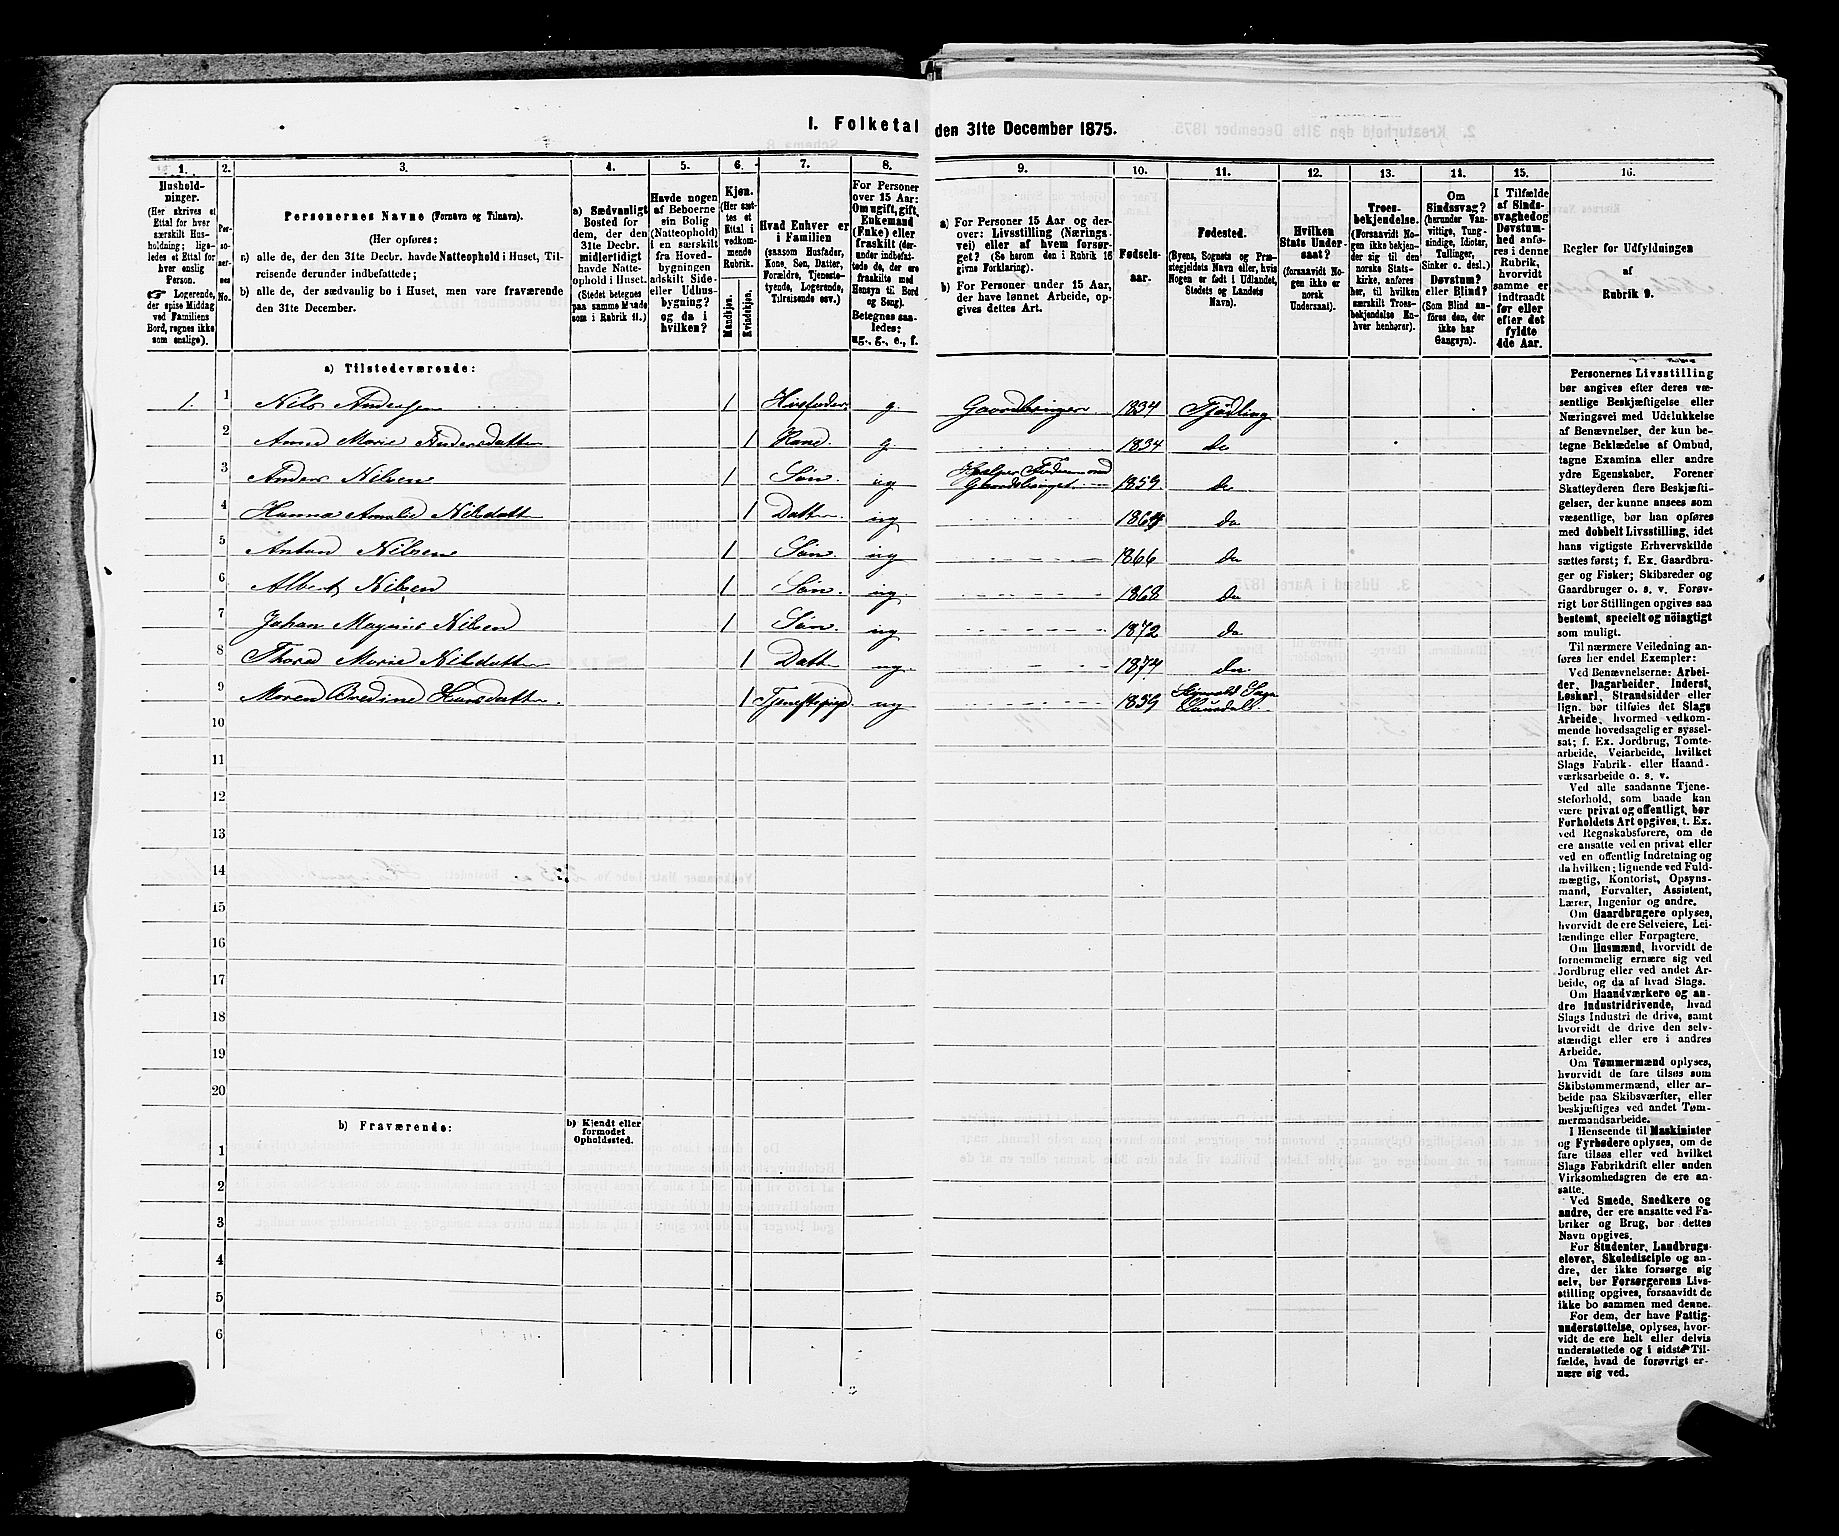 1. Folketal den 31te December 1875.
1.
Hushold-
ninger.
(Her skrives et
Ettal for hver
særskilt Hus-
holdning; lige-
ledes et Ettal for
hver enslig
Person.
☞ Logerende,
der spise Middag
ved Familiens
Bord, regnes ikke
som enslige).
2.
Per-
so-
ner-
nes
No.
3.
Personernes Navne (Fornavn og Tilnavn).
(Her opføres:
a) alle de, der den 31te Decbr. havde Natteophold i Huset, Til-
reisende derunder indbefattede;
b) alle de, der sædvanlig bo i Huset, men vare fraværende
den 31te December.
4.
a) Sædvanligt
Bosted for
dem, der den
31te Decbr.
midlertidigt
havde Natte-
ophold i Huset.
(Stedet betegnes
paa samme Maade
som i Rubrik 11.)
5.
Havde nogen
af Beboerne
sin Bolig
(Natteophold)
i en særskilt
fra Hoved-
bygningen
adskilt Side-
eller Udhus-
bygning?
og da i
hvilken?
6.
Kjøn.
(Her sæt-
tes et
Ettal i
vedkom-
mende
Rubrik.
Mandkjøn.
Kvindekjøn.
7.
Hvad Enhver er
i Familien
(saasom Husfader,
Kone, Søn, Datter,
Forældre, Tjeneste-
tyende, Logerende,
Tilreisende osv.)
8.
For Personer
over 15 Aar:
Om ugift, gift,
Enkemand
(Enke) eller
fraskilt (der-
under indbefat-
tede de, der ere
fraskilte med
Hensyn til Bord
og Seng).
Betegnes saa-
ledes:
ug., g., e., f.
9.
a) For Personer 15 Aar og der-
over: Livsstilling (Nærings-
vei) eller af hvem forsør-
get? (Se herom den i Rubrik 16
givne Forklaring).
b) For Personer under 15 Aar,
der have lønnet Arbeide, op-
gives dettes Art.
10.
Fødsels-
aar.
11.
Fødested.
(Byens, Sognets og Præ-
stegjeldets Navn eller, hvis
Nogen er født i Udlandet,
Stedets og Landets
Navn).
12.
Hvilken
Stats Under-
saat?
(forsaavidt No-
gen ikke er
norsk
Undersaat).
13.
Troes-
bekjendelse.
(Forsaavidt No-
gen ikke bekjen-
der sig til den
norske Stats-
kirke, anføres
her, til hvilken
særskilt Troes-
bekjendelse En-
hver henhører).
14.
Om
Sindssvag?
(herunder Van-
vittige, Tung-
sindige, Idioter,
Tullinger,
Sinker o. desl.)
Døvstum?
eller Blind?
(Som Blind an-
føres den, der
ikke har
Gangsyn).
15.
I Tilfælde
af Sinds-
svaghed og
Døvstum-
hed anfø-
res i denne
Rubrik,
hvorvidt
samme er
indtraadt
før eller
efter det
fyldte
4de Aar.
16.
Regler for Udfyldningen
af
Rubrik 9.
a) Tilstedeværende:
1. 1 Nils Andersen 1 Husfader g. Gaardbruger 1834 Tjødling
2 Anne Marie Andersdatter 1 Kone g. 1834 do
3 Anders Nilsen 1 Søn ug Hjælper Faderen med Gaardsbruget 1859 do
4 Hanna Amalie Nilsdatter 1 Datter ug 1864 do
5 Anton Nilsen 1 Søn ug 1866 do
6 Albert Nilsen 1 Søn ug 1868 do
7 Johan Magnus Nilsen 1 Søn ug 1872 do
8 Thora Marie Nilsdatter 1 Datt ug 1874 do
9 Maren Bredine Hansdatter 1 Tjenestepige ug 1859
10
11
12
13
14
15
16
17
18
19
20
b) Fraværende:
b) Kjendt eller
formodet
Opholdssted.
1
2
3
4
5
6
Personernes Livsstilling
bør angives efter deres væ-
sentlige Beskjæftigelse eller
Næringsvei med Udelukkelse
af Benævnelser, der kun be-
tegne Beklædelse af Ombud,
tagne Examina eller andre
ydre Egenskaber. Forener
Skatteyderen flere Beskjæfti-
gelser, der kunne ansees som
væsentlige, bør han opføres
med dobbelt Livsstilling, idet
hans vigtigste Erhvervskilde
sættes først; f. Ex. Gaardbru-
ger og Fisker; Skibsreder og
Gaardbruger o. s. v. Forøv-
rigt bør Stillingen opgives saa
bestemt, specielt og nöiagtigt
som muligt.
Til nærmere Veiledning an-
føres her endel Exempler:
Ved Benævnelserne: Arbei-
der, Dagarbeider, Inderst,
Løskarl, Strandsidder eller
lign. bør tilføies det Slags
Arbeide, hvormed vedkom-
mende hovedsagelig er syssel-
sat; f. Ex. Jordbrug, Tomte-
arbeide, Veiarbeide, hvilket
Slags Fabrik- eller Haand-
værksarbeide o. s. v.
Ved alle saadanne Tjene-
steforhold, som baade kan
være privat og offentligt, bør
Forholdets Art opgives, t. Ex.
ved Regnskabsførere, om de
ere ansatte ved en privat eller
ved en offentlig Indretning og
da hvilken; lignende ved Fuld-
mægtig, Kontorist, Opsyns-
mand, Forvalter, Assistent,
Lærer, Ingeniør og andre.
Om Gaardbrugere oplyses,
hvorvidt de ere Selveiere, Lei-
lændinge eller Forpagtere.
Om Husmænd, hvorvidt de
fornemmelig ernære sig ved
Jordbrug eller ved andet Ar-
beide, og da af hvad Slags.
Om Haandværkere og an-
dre industridrivende, hvad
Slags Industri de drive, samt
hvorvidt de drive den selv-
stændigt eller ere i andres
Arbeide.
Om Tømmermænd oplyses,
hvorvidt de fare tilsøs som
Skibstømmermænd, eller ar-
beide paa Skibsværfter, eller
beskjæftiges ved andet Tøm-
mermandsarbeide.
I Henseende til Maskinister
og Fyrbødere oplyses, om de
fare tilsøs eller ved hvilket
Slags Fabrikdrift eller anden
Virksomhedsgren de ere an-
satte.
Ved Smede, Snedkere og
andre, der ere ansatte ved Fa-
briker og Brug, bør dettes
Navn opgives.
For Studenter, Landbrugs-
elever, Skoledisciple og an-
dre, der ikke forsørge sig
selv, bør Forsørgerens Livs-
stilling opgives, forsaavidt de
ikke bo sammen med denne.
For dem, der have Fattig-
understøttelse, oplyses, hvor-
vidt de ere helt eller delvis
understøttede og i sidste Til-
fælde, hvad de forøvrigt er-
nære sig ved.